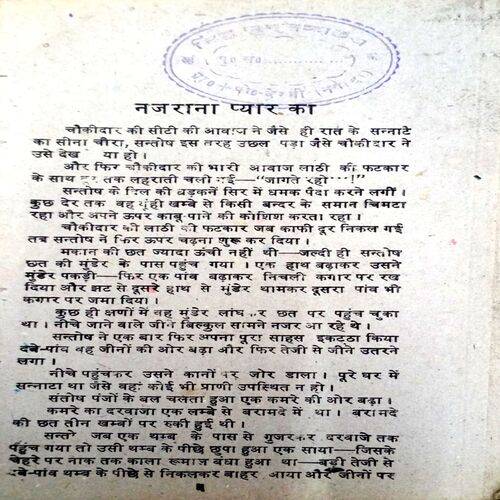 नजराना प्यार का
चौकीदार की सीटी की आवाज ने जैसे ही रात के सन्नाटे
का सीना चीरा, सन्तोष इस तरह उछल पड़ा जैसे चौकीदार ने
उसे देख या हो ।
और फिर चौकीदार की भारी आवाज लाठी की फटकार
के साथ दूर तक लहराती चली गई—“जागते रहो...!”
सन्तोष के दिल की धड़कनें सिर में धमक पैदा करने लगीं ।
कुछ देर तक वह यूंही खम्बे से किसी बन्दर के समान चिमटा
रहा और अपने ऊपर काबू पाने की कोशिश करता रहा ।
चौकीदार की लाठी की फटकार जब काफी दूर निकल गई
तब सन्तोष ने फिर ऊपर चढ़ना शुरू कर दिया ।
मकान की छत ज्यादा ऊंची नहीं थी—जल्दी ही सन्तोष
छत की मुंडेर के पास पहुंच गया । एक हाथ बढ़ाकर उसने
मुंडेर पकड़ी—फिर एक पांव बढ़ाकर निचली कगार पर रख
दिया और झट से दूसरे हाथ से मुंडेर थामकर दूसरा पांव भी
कगार पर जमा दिया ।
कुछ ही क्षणों में वह मुंडेर लांघ कर छत पर पहुंच चुका
था । नीचे जाने वाले जीने बिल्कुल सामने नजर आ रहे थे ।
सन्तोष ने एक बार फिर अपना पूरा साहस इकटठा किया
दबे-पांव वह जीनों की ओर बढ़ा और फिर तेजी से जीने उतरने
लगा ।
नीचे पहुंचकर उसने कानों पर जोर डाला । पूरे घर में
सन्नाटा था जैसे वहां कोई भी प्राणी उपस्थित न हो ।
संतोष पंजों के बल चलता हुआ एक कमरे की ओर बढ़ा ।
कमरे का दरवाजा एक लम्बे से बरामदे में था । बरामदे
की छत तीन खम्बों पर रुकी हुई थी ।
सन्तो जब एक थम्ब के पास से गुजरकर दरवाजे तक
पहुंच गया तो उसी थम्ब के पीछे छुपा हुआ एक साया—जिसके
चेहरे पर नाक तक काला रूमाल बंधा हुआ था—बड़ी तेजी से
दबे-पांव थम्ब के पीछे से निकलकर बाहर आया और जीनों पर